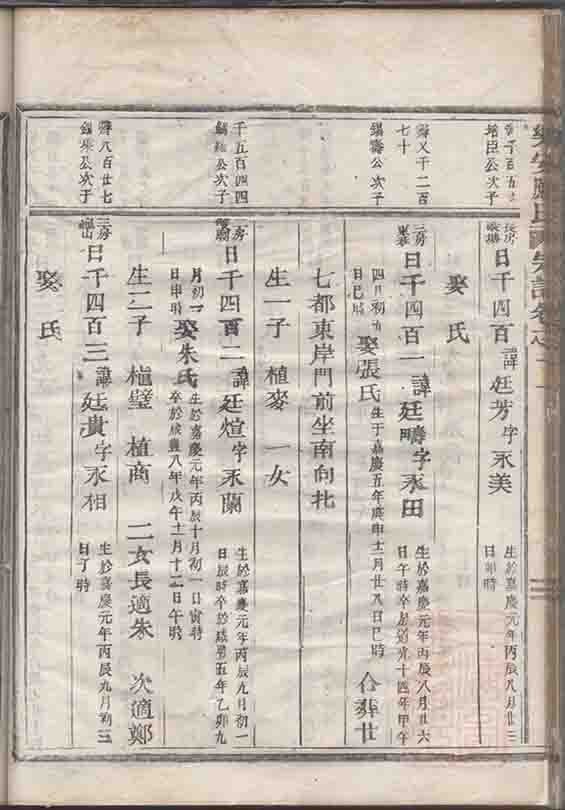 日千四百 諱廷芳字永美
生於嘉慶元年丙辰八月廿三
日申時
娶氏
七十
錫壽公次子
三房
日千四百一 諱廷疇字永田
生於嘉慶元年丙辰八月廿六
日午時卒於道光十四年甲午
四月初
日巳時
娶張氏
生于嘉慶五年庚申十二月廿八日巳時
合葬廿
七都東岸門前坐南向北
生一子 植麥 一女
千五百四四
公次子
日千四百二 諱廷煊字永蘭
生於嘉慶元年丙辰九月初一
日辰時卒於咸豐五年乙卯九
月初一
日申時
娶朱氏
生於嘉慶元年丙辰十月初一日寅時
卒於咸豐八年戊午十二月十二日午時
生二子 植璧 植商 二女長適朱 次適鄭
八百廿七
公次子
三房
日千四百三 諱廷貴字永相
生於嘉慶元年丙辰九月初三
日丁時
娶氏